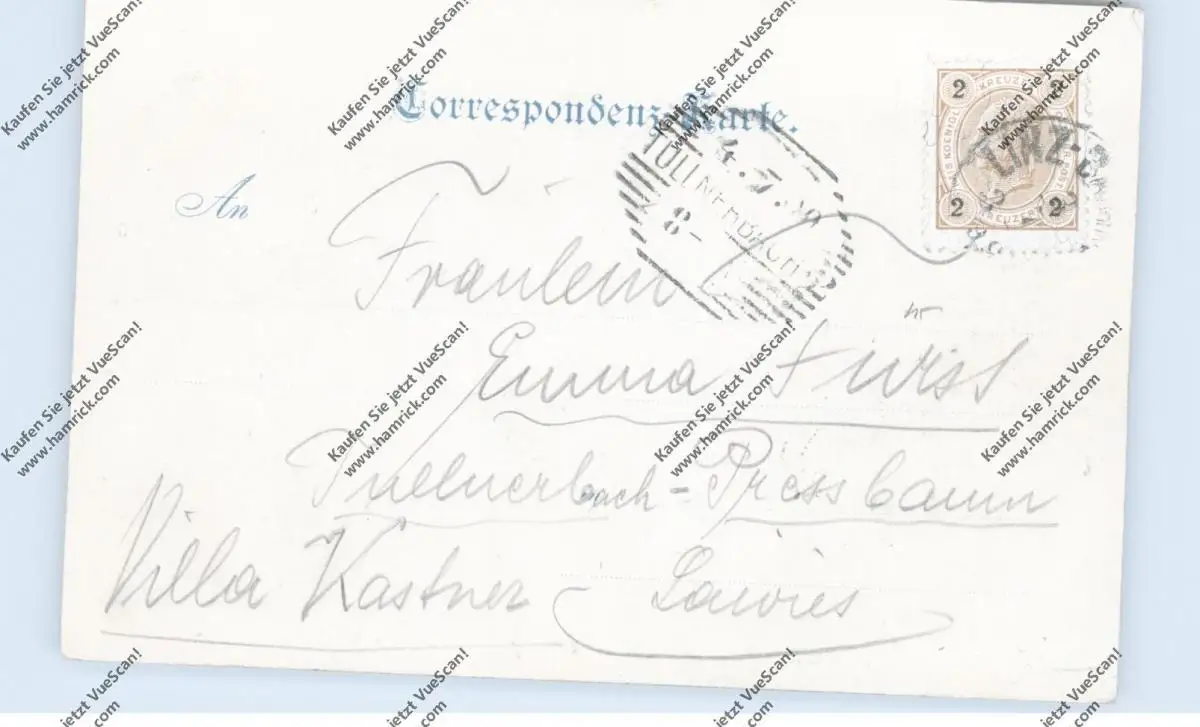 Correspondenz-Karte.
2 KREUZER 2
2 KREUZER 2
LINZ-
TULLNERBACH
4.7.
8-
An
Fräulein
Emma Fürst
Tullnerbach-Pressbaum
Villa Kastner
Kaufen Sie jetzt VueScan!
www.hamrick.com